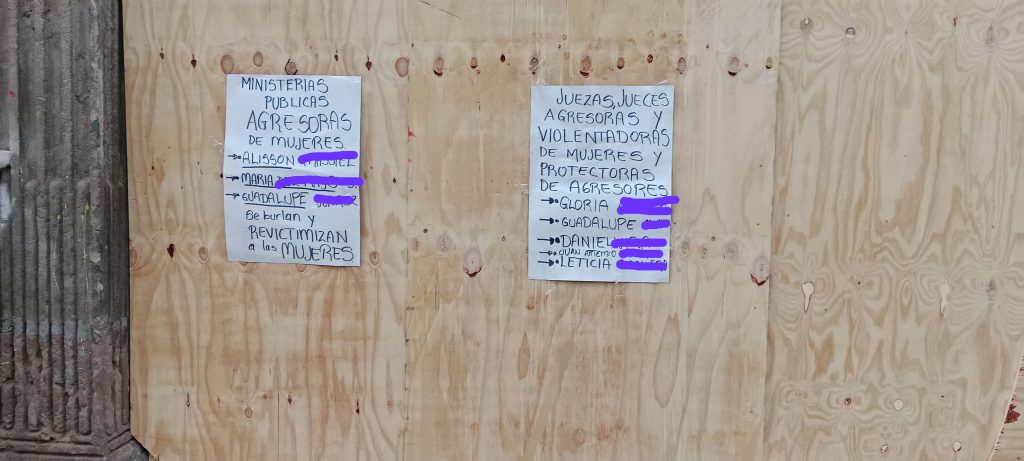 MINISTERIAS
PUBLICAS
AGRESORAS
DE MUJERES
→• ALISSON
→• MARIA
→• GUADALUPE
se burlan y
REVICTIMIZAN
a las MUJERES
JUEZAS, JUECES
AGRESORAS Y
VIOLENTADORAS
DE MUJERES Y
PROTECTORAS
DE AGRESORES
→• GLORIA
→• GUADALUPE
→• DANIEL
→• JUAN
→• LETICIA